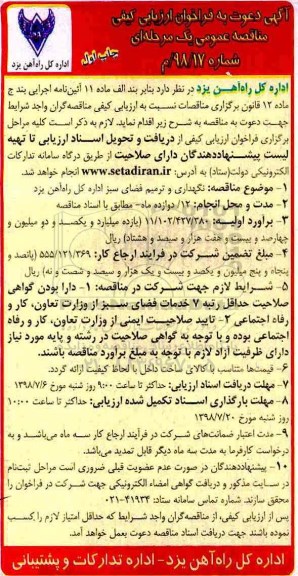 آگهی دعوت به فراخوان ارزیابی کیفی
مناقصه عمومی یک مرحله‌ای
شماره ۹۸/۱۷/م
چاپ اول
اداره کل راه‌آهن یزد
اداره کل راه‌آهن یزد در نظر دارد بنابر بند الف ماده ۱۱ آئین‌نامه اجرایی بند ج
ماده ۱۲ قانون برگزاری مناقصات نسبت به ارزیابی کیفی مناقصه‌گران واجد شرایط
جهت دعوت به مناقصه به شرح زیر اقدام نماید. لازم به ذکر است کلیه مراحل
برگزاری فراخوان ارزیابی کیفی از دریافت و تحویل اسناد ارزیابی تا تهیه
لیست پیشنهاددهندگان دارای صلاحیت از طریق درگاه سامانه تدارکات
الکترونیکی دولت(ستاد) به آدرس: www.setadiran.ir انجام خواهد شد.
۱- موضوع مناقصه: نگهداری و ترمیم فضای سبز اداره کل راه‌آهن یزد
۲- مدت و محل انجام: ۱۲/ دوازده ماه- مطابق با اسناد مناقصه
۳- برآورد اولیه: ۱۱/۱۰۲/۴۲۷/۳۸۰ (یازده میلیارد و یکصد و دو میلیون و
چهارصد و بیست و هفت هزار و سیصد و هشتاد) ریال
۴- مبلغ تضمین شرکت در فرآیند ارجاع کار: ۵۵۵/۱۲۱/۳۶۹ (پانصد و
پنجاه و پنج میلیون و یکصد و بیست و یک هزار و سیصد و شصت و نه) ریال
۵- شرایط لازم جهت شرکت در مناقصه: ۱- دارا بودن گواهی
صلاحیت حداقل رتبه ۷ خدمات فضای سبز از وزارت تعاون، کار و
رفاه اجتماعی ۲- تایید صلاحیت ایمنی از وزارت تعاون، کار و رفاه
اجتماعی بوده و با توجه به گواهی صلاحیت در رشته و پایه مورد نیاز
دارای ظرفیت آزاد لازم با توجه به مبلغ برآورد مناقصه باشند.
۶- قیمت‌ها متناسب با کالای ساخت داخل با لحاظ کیفیت ارائه گردد.
۷- مهلت دریافت اسناد ارزیابی: حداکثر تا ساعت ۹:۰۰ روز شنبه مورخ ۱۳۹۸/۷/۶
۸- مهلت بارگذاری اسناد تکمیل شده ارزیابی: حداکثر تا ساعت ۱۰:۰۰
روز شنبه مورخ ۱۳۹۸/۷/۲۰
۹- مدت اعتبار ضمانت‌های شرکت در فرآیند ارجاع کار سه ماه می‌باشند و به
درخواست کارفرما به مدت سه ماه دیگر قابل تمدید می‌باشد.
۱۰- پیشنهاددهندگان در صورت عدم عضویت قبلی ضروری است مراحل ثبت‌نام
در سایت مذکور و دریافت گواهی امضاء الکترونیکی جهت شرکت در فراخوان را
محقق سازند. شماره تماس سامانه ستاد: ۴۱۹۳۴-۰۲۱
پس از ارزیابی کیفی، از مناقصه‌گران واجد شرایط که حداقل امتیاز لازم را کسب
نموده باشند جهت دریافت اسناد مناقصه دعوت بعمل خواهد آمد.
اداره کل راه‌آهن یزد- اداره تدارکات و پشتیبانی